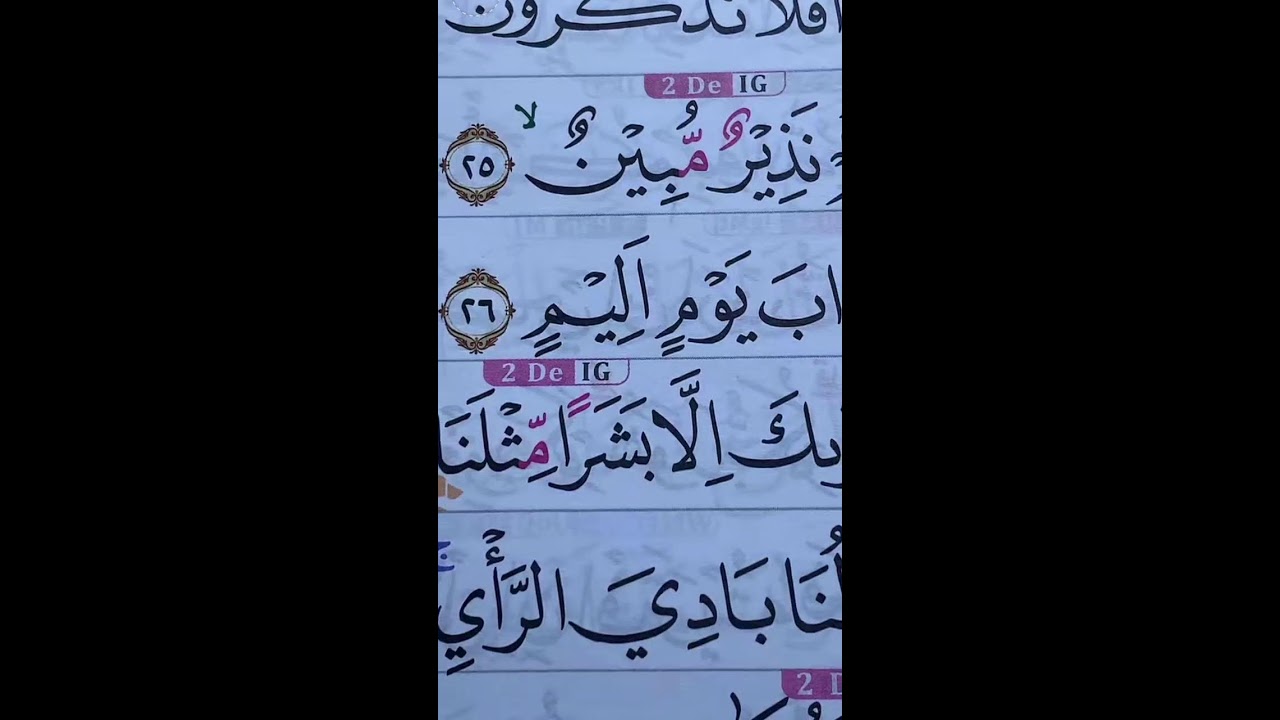 افلا تذكرون
2 De IG
نَذِيْرٌ مُّبِيْنٌ لا ٢٥
ابَ يَوْمٍ اَلِيْمٍ ٢٦
2 De IG
اِلَّا بَشَرًا مِّثْلَنَا
بَادِيَ الرَّأْيِ ج
2